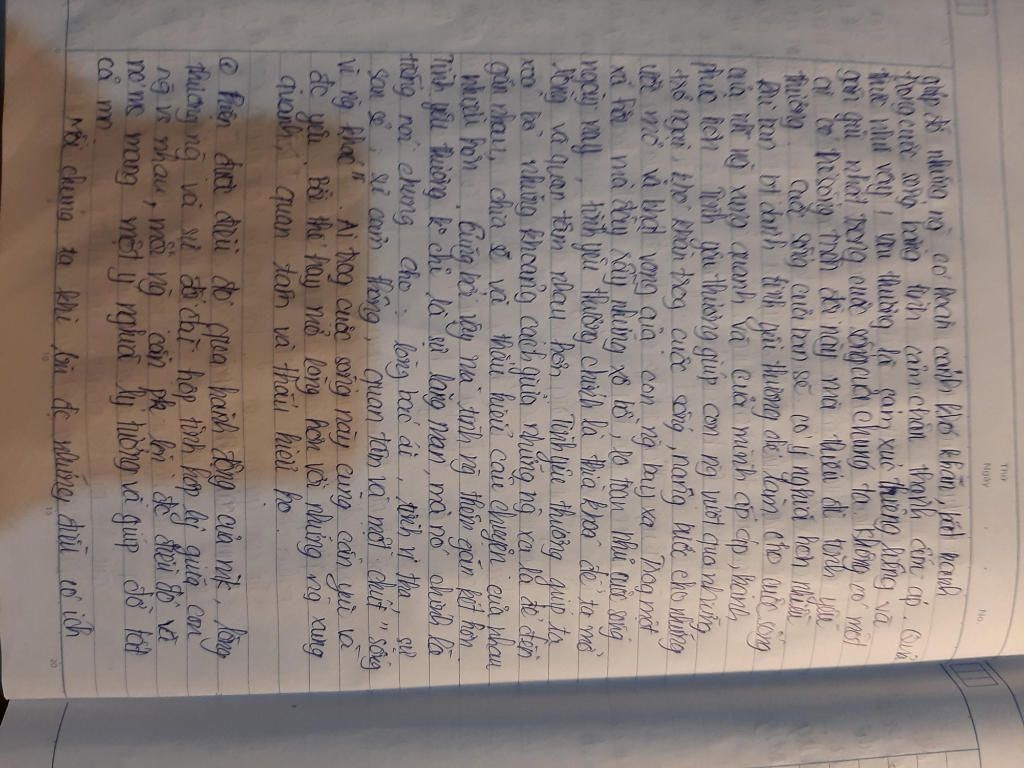 Thứ
Ngày
No.
giúp đỡ những ng có hoàn cảnh khó khăn, bất hạnh
trong cuộc sống bằng tình cảm chân thành,
thực như vậy, yêu thương là cảm xúc thiêng liêng và
gần gũi nhất trong cuộc sống của chúng ta. Không có một
ai có thể sống trên đời này mà thiếu đi tình yêu
thương. Cuộc sống của bạn sẽ có ý nghĩa hơn nhiều
khi bạn biết dành tình yêu thương để làm cho cuộc sống
của những ng xung quanh và của mình hạnh
phúc hơn. Tình yêu thương giúp con ng vượt qua những
trở ngại, khó khăn trog cuộc sống, nâng bước cho những
ước mơ và khát vọng của con ng bay xa. Trog một
xã hội mà đầy rẫy những xô bồ, lo toan như cuộc sống
ngày nay, tình yêu thương chính là thìa khoá để ta mở
lòng và quan tâm nhau hơn. Tình yêu thương giúp ta
xoá bỏ những khoảng cách giữa những ng xa lạ để đến
gần nhau, chia sẻ và thấu hiểu câu chuyện của nhau
nhiều hơn. Cũng bởi vậy mà tình ng thêm gắn kết hơn.
Tình yêu thương k chỉ là sự lãng mạn, mà nó chính là
tiếng nói chung cho lòng bác ái, tình vị tha, sự
san sẻ, sự cảm thông, quan tâm và một chút "sống
vì ng khác". Ai trog cuộc sống này cũng cần yêu và
đc yêu. Bởi thế hãy mở lòng hơn với những ng xung
quanh, quan tâm và thấu hiểu họ.
thương ng và sự đối đãi hợp tình hợp lý giữa con
ng vs nhau, mỗi ng cần phải
mang một ý nghĩa lý tưởng và giúp đỡ
Mỗi chúng ta khi làm đc những điều có ích